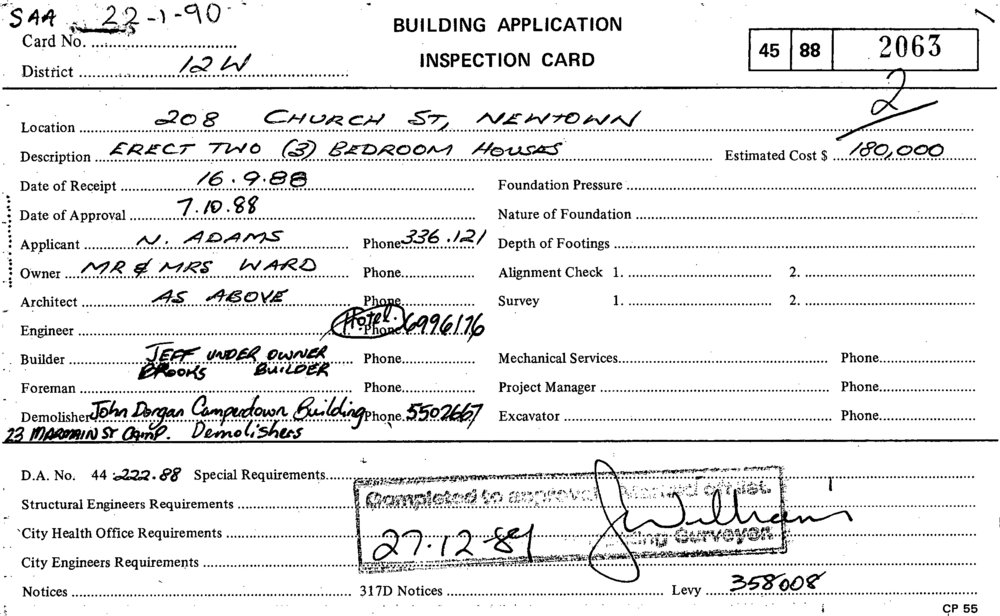 SAA 22-1-90
BUILDING APPLICATION
Card No.
INSPECTION CARD
45 88 2063
District 12 W
2
Location 208 CHURCH ST, NEWTOWN
Description ERECT TWO (3) BEDROOM HOUSES Estimated Cost $ 180,000
Date of Receipt 16.9.88 Foundation Pressure
Date of Approval 7.10.88 Nature of Foundation
Applicant N. ADAMS Phone 336.121 Depth of Footings
Owner MR & MRS WARD Phone Alignment Check 1. 2.
Architect AS ABOVE Phone Survey 1. 2.
Engineer Hotel. Phone 6996176
Builder JEFF UNDER OWNER Phone Mechanical Services Phone
BROOKS BUILDER
Foreman Phone Project Manager Phone
Demolisher John Dorgan Camperdown Building Phone 5502667 Excavator Phone
23 ST CAMP. Demolishers
D.A. No. 44 222.88 Special Requirements
Completed to approval
Structural Engineers Requirements
City Health Office Requirements
27.12.89 J Williams
Surveyor
City Engineers Requirements
Notices 317D Notices Levy 358008
CP 55